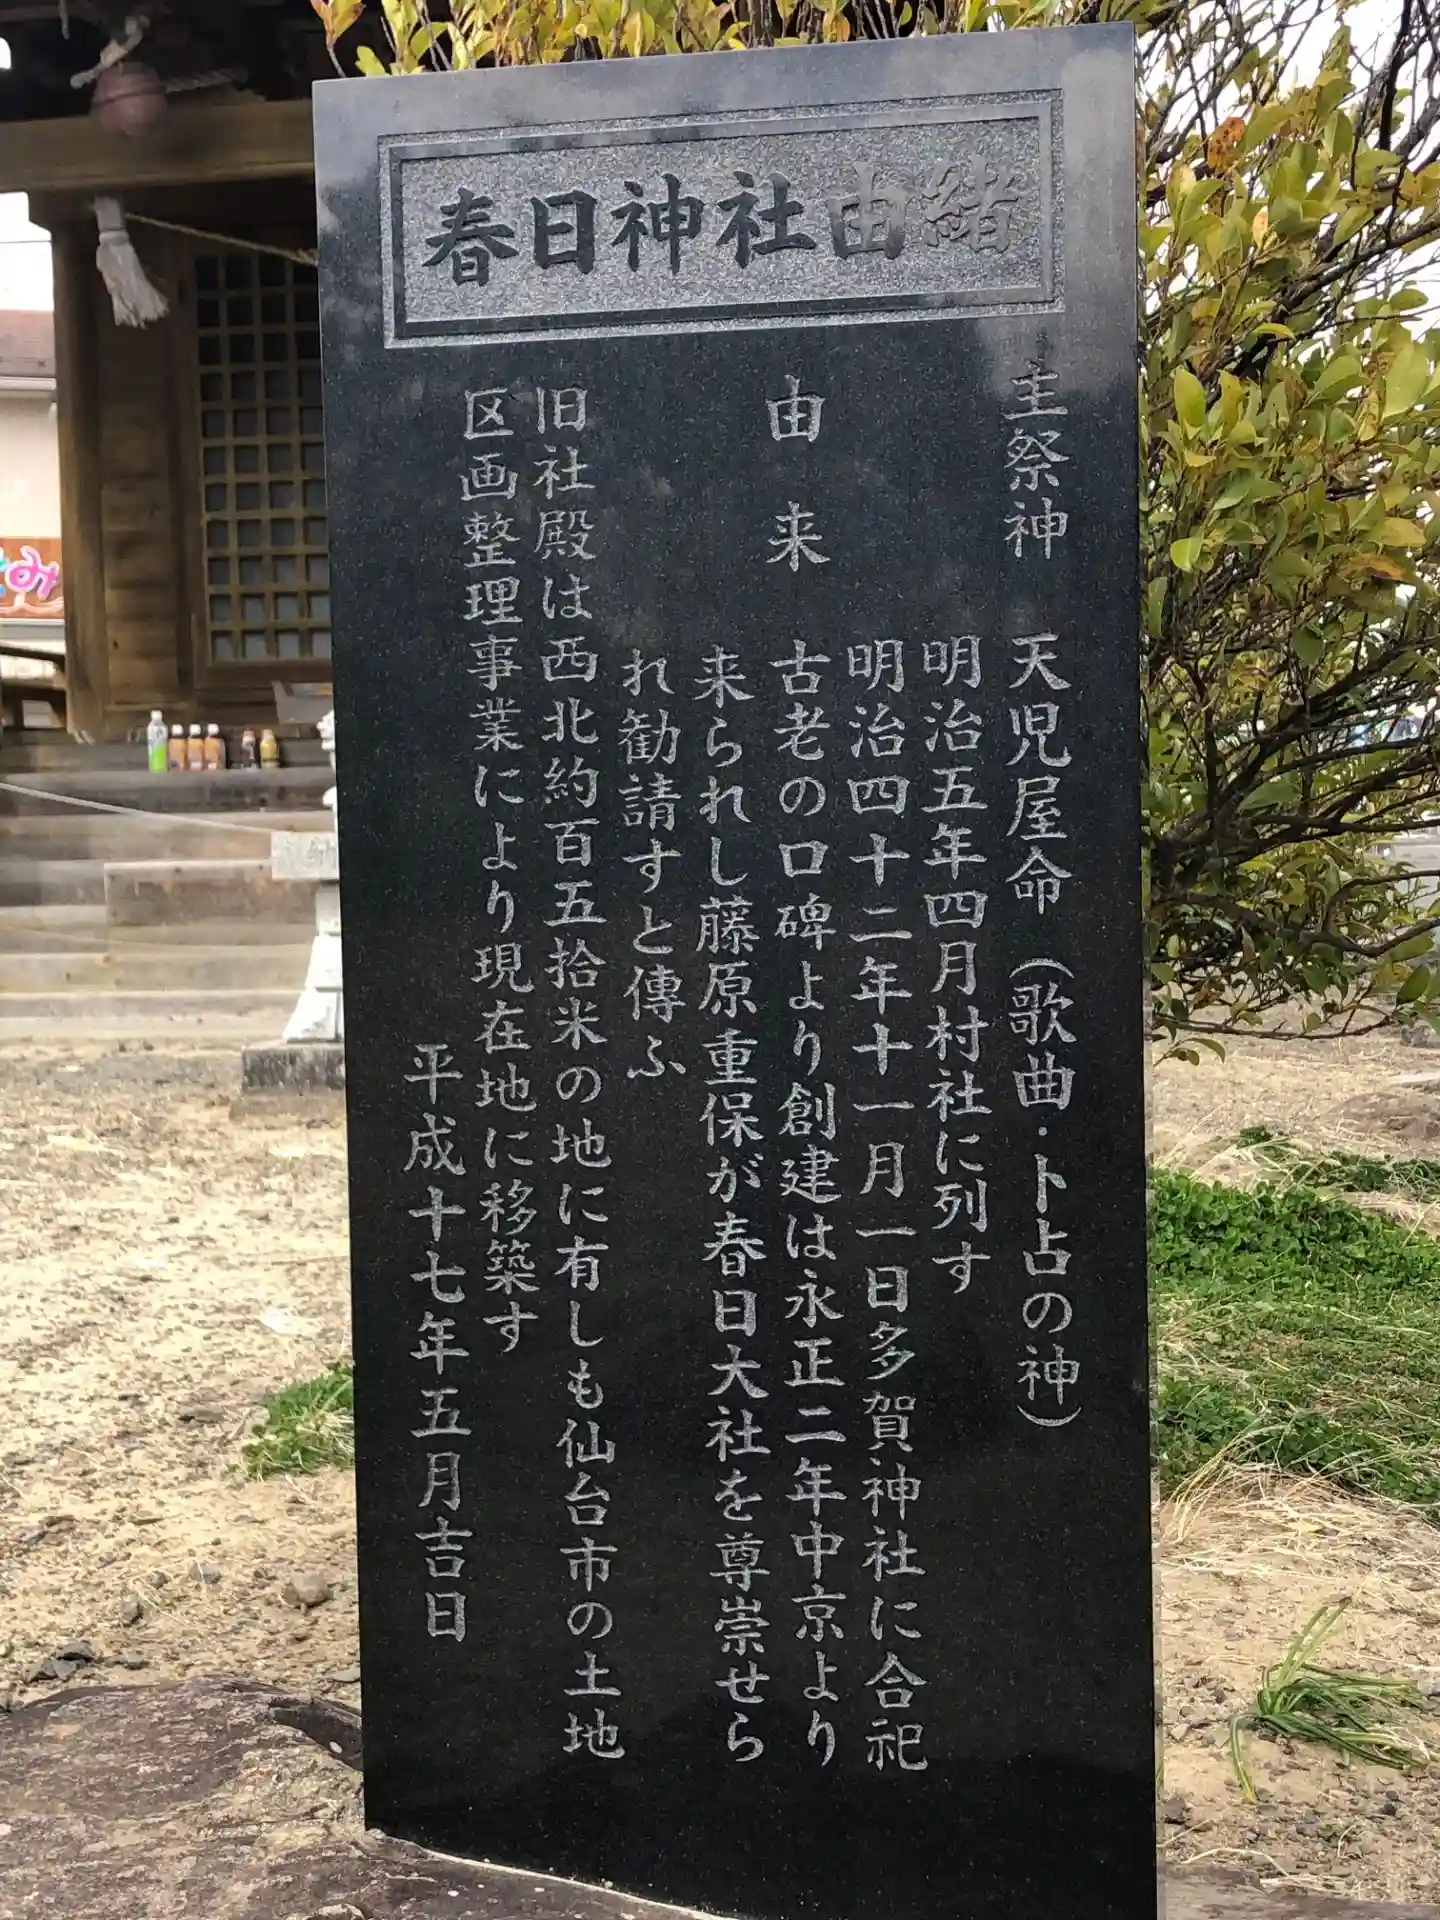 春日神社由緒
主祭神　天児屋命（歌曲・卜占の神）
明治五年四月村社に列す
明治四十二年十一月一日多賀神社に合祀
由来　古老の口碑より創建は永正二年中京より
来られし藤原重保が春日大社を尊崇せら
れ勧請すと傳ふ
旧社殿は西北約百五拾米の地に有しも仙台市の土地
区画整理事業により現在地に移築す
平成十七年五月吉日